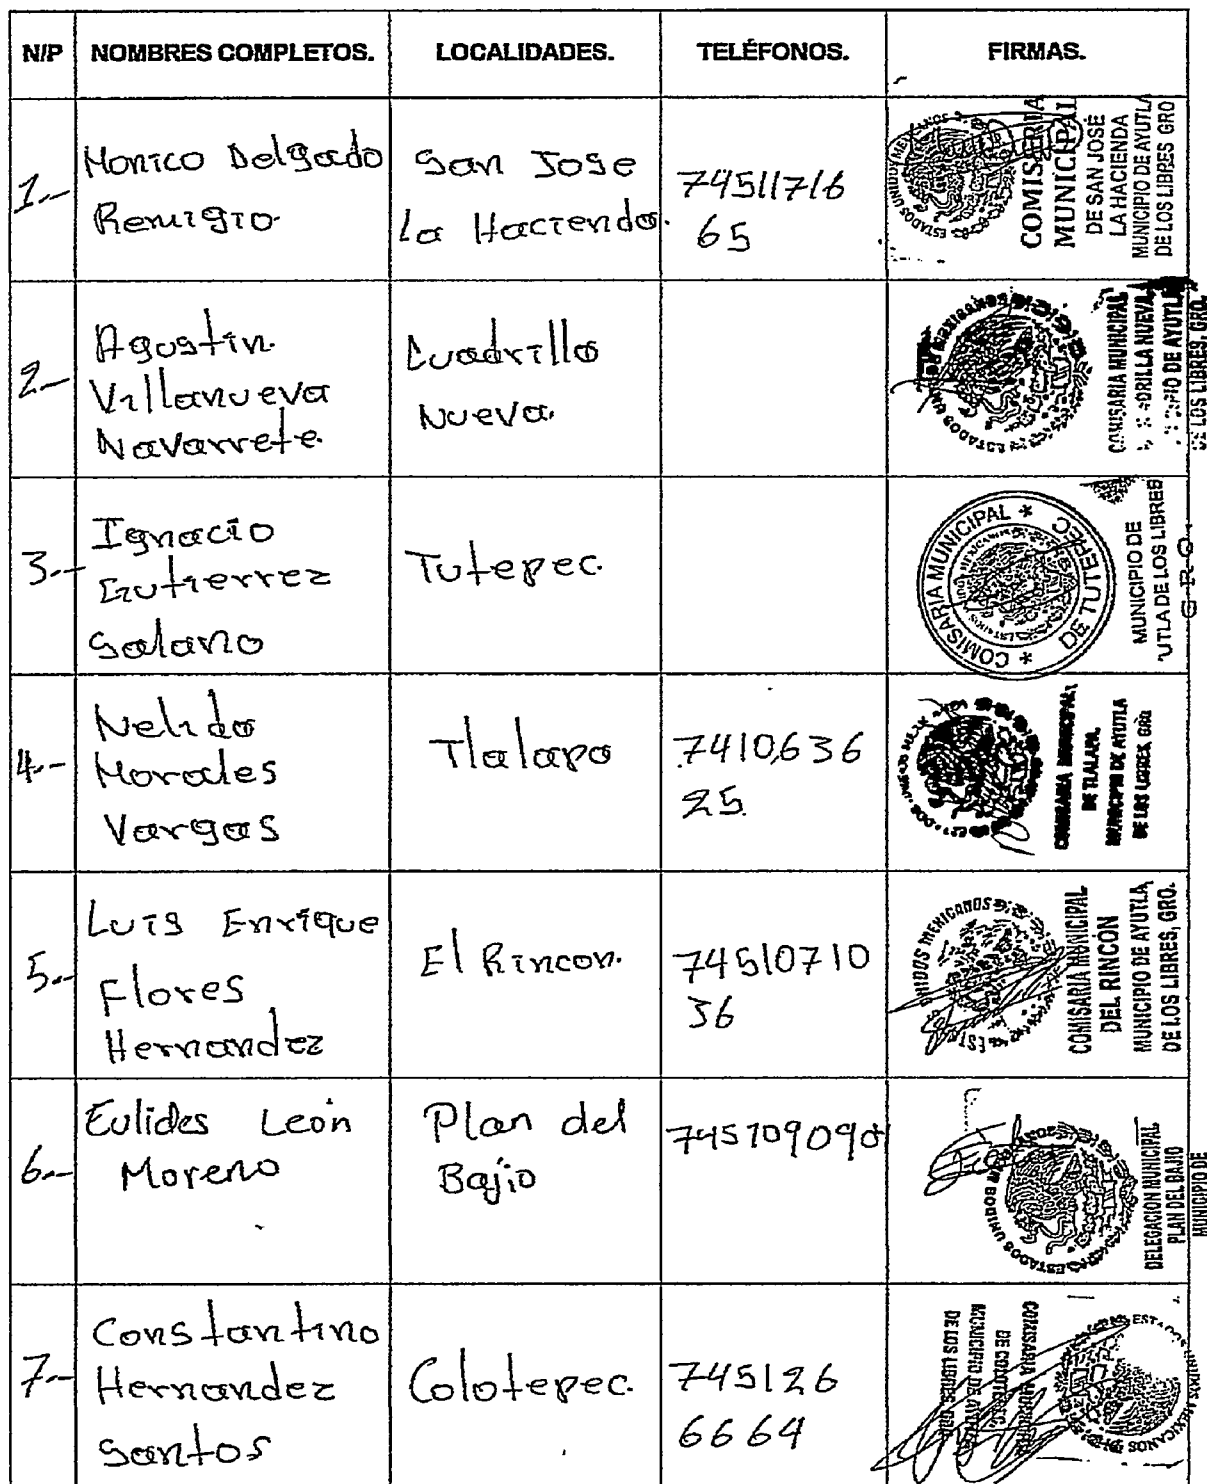 N/P NOMBRES COMPLETOS. LOCALIDADES. TELÉFONOS. FIRMAS.
1.-
Monico Delgado
Remigio.
San Jose
La Hacienda.
74511716
65
ESTADOS UNIDOS MEXICANOS
COMISERIA
MUNICIPAL
DE SAN JOSÉ
LA HACIENDA
MUNICIPIO DE AYUTLA
DE LOS LIBRES GRO
2.-
Agustin.
Villanueva
Navarrete.
Cuadrilla
Nueva.
ESTADOS UNIDOS MEXICANOS
COMISARIA MUNICIPAL
DRILLA NUEVA,
PIO DE AYUTLA
DE LOS LIBRES, GRO.
3.-
Ignacio
Gutierrez
Galano
Tutepec.
* COMISARIA MUNICIPAL *
DE TUTEPEC
MUNICIPIO DE
UTLA DE LOS LIBRES
G-R-O-
4.-
Nelido
Morales
Vargas
Tlalapa
7410636
25.
COMISARIA MUNICIPAL
DE TLALAPA,
MUNICIPIO DE AYUTLA
DE LOS LIBRES, GRO.
5.-
Luis Enrique
Flores
Hernandez
El Rincon.
74510710
36
ESTADOS UNIDOS MEXICANOS
COMISARIA MUNICIPAL
DEL RINCÓN
MUNICIPIO DE AYUTLA
DE LOS LIBRES, GRO.
6.-
Eulides León
Moreno
Plan del
Bajío
ESTADOS UNIDOS
DELEGACION MUNICIPAL
PLAN DEL BAJIO
MUNICIPIO DE
7.-
Constantino
Hernandez
Santos
Colotepec.
745126
6664
ESTADOS UNIDOS MEXICANOS
COMISARIA MUNICIPAL
DE COLOTEPEC,
MUNICIPIO DE AYUTLA
DE LOS LIBRES, GRO.